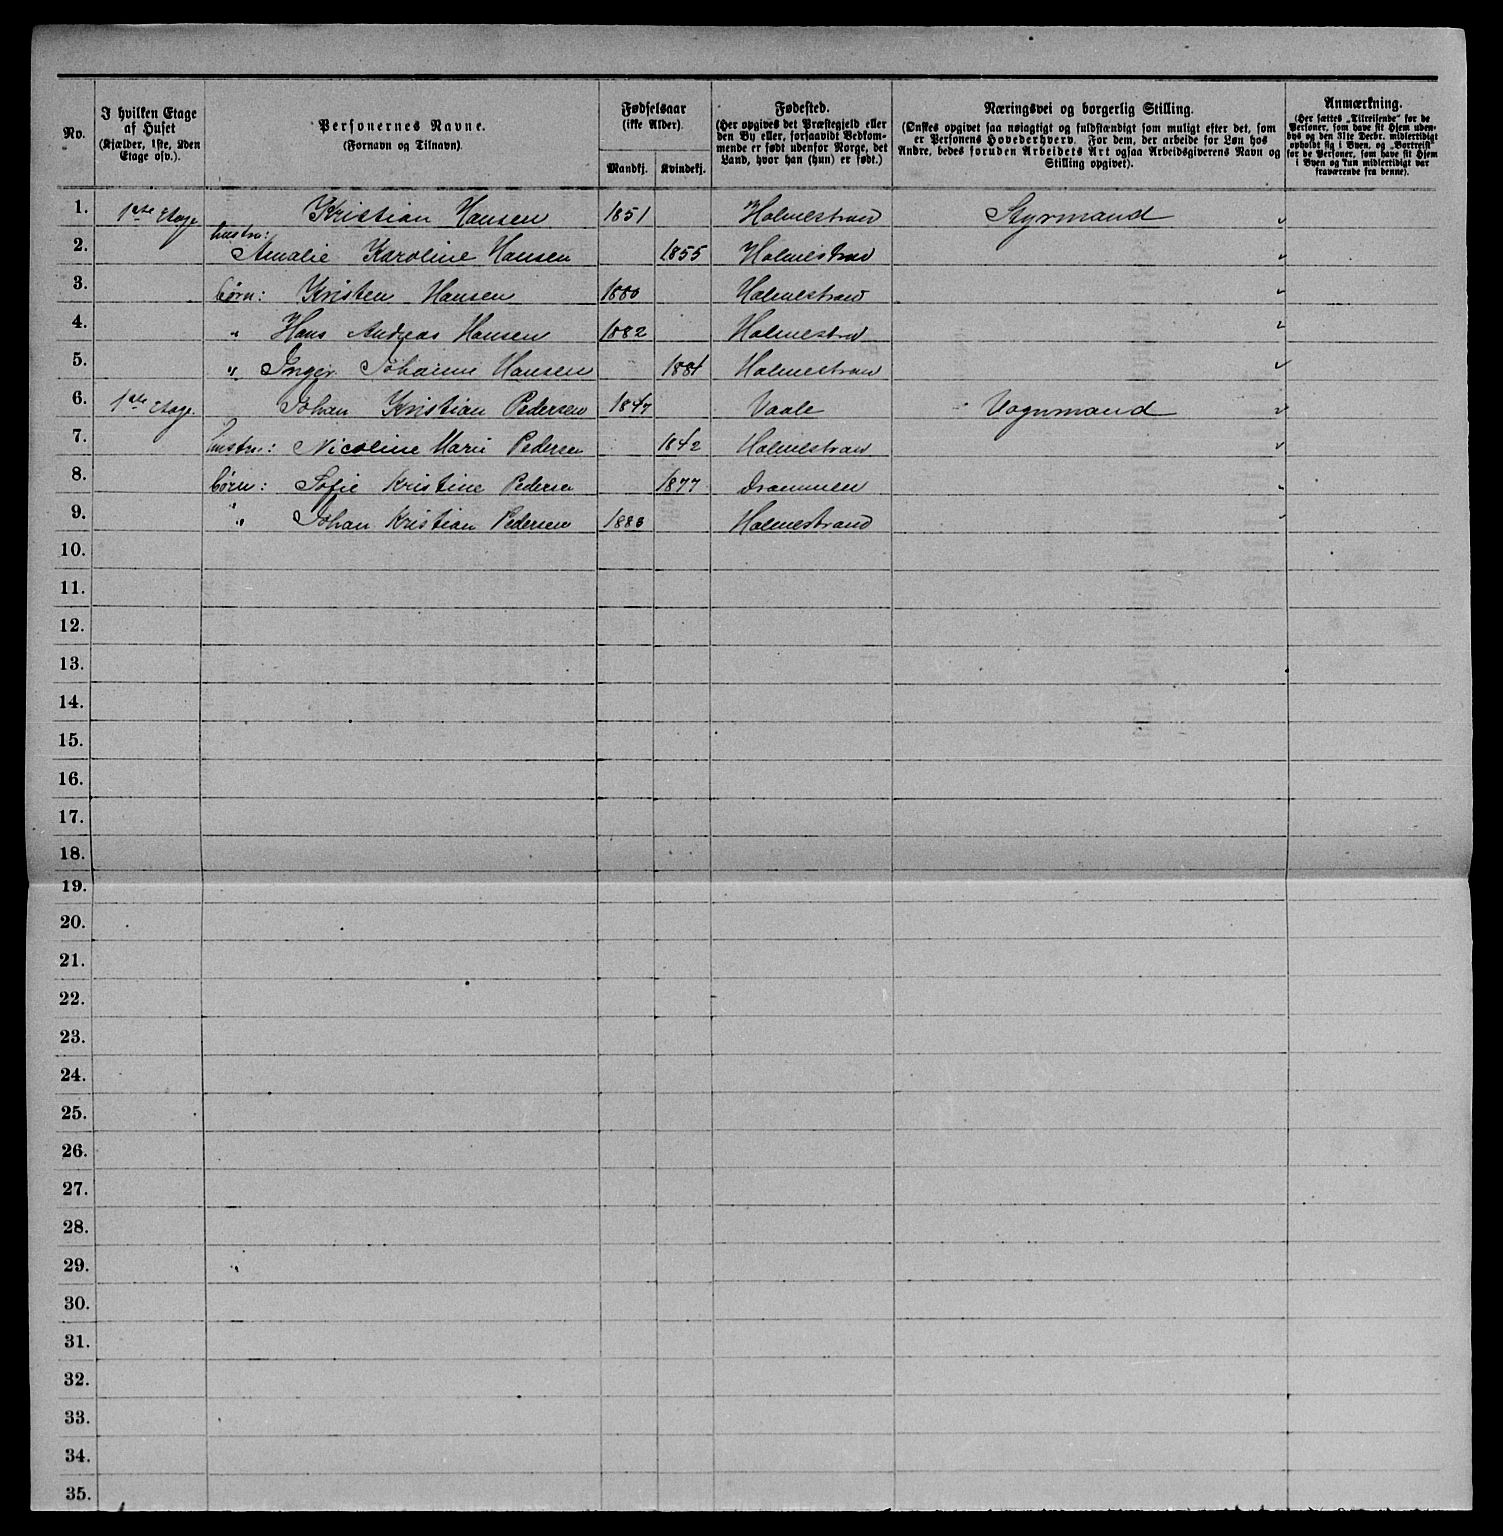 No.
I hvilken Etage
af Huset
(Kjælder, 1ste, 2den
Etage osv.).
Personernes Navne.
(Fornavn og Tilnavn).
Fødselsaar
(ikke Alder).
Mandkj. Kvindekj.
Fødested.
(Her opgives det Præstegjeld eller
den By eller, forsaavidt Vedkom-
mende er født udenfor Norge, det
Land, hvor han (hun) er født.)
Næringsvei og borgerlig Stilling.
(Ønskes opgivet saa nøiagtigt og fuldstændigt som muligt efter det, som
er Personens Hovederhverv. For dem, der arbeide for Løn hos
Andre, bedes foruden Arbeidets Art ogsaa Arbeidsgiverens Navn og
Stilling opgivet).
Anmærkning.
(Her sættes „Tilreisende“ for de
Personer, som have sit Hjem uden-
bys og den 31te Decbr. midlertidigt
opholdt sig i Byen, og „Bortreist“
for de Personer, som have sit Hjem
i Byen og kun midlertidigt var
fraværende fra denne).
1. 1ste Etage Kristian Hansen 1851 Holmestrand Styrmand
hustru:
2. Amalie Karoline Hansen 1855 Holmestrand
3. børn: Kristen Hansen 1880 Holmestrand
4. " Hans Andreas Hansen 1882 Holmestrd
5. " Inger Johanne Hansen 1884 Holmestrand
6. 1ste Etage Johan Kristian Pedersen 1847 Vaale Vognmand
7. hustru: Nicoline Marie Pedersen 1842 Holmestrand
8. børn: Sofie Kristine Pedersen 1877 Drammen
9. " Johan Kristian Pedersen 1883 Holmestrand
10.
11.
12.
13.
14.
15.
16.
17.
18.
19.
20.
21.
22.
23.
24.
25.
26.
27.
28.
29.
30.
31.
32.
33.
34.
35.